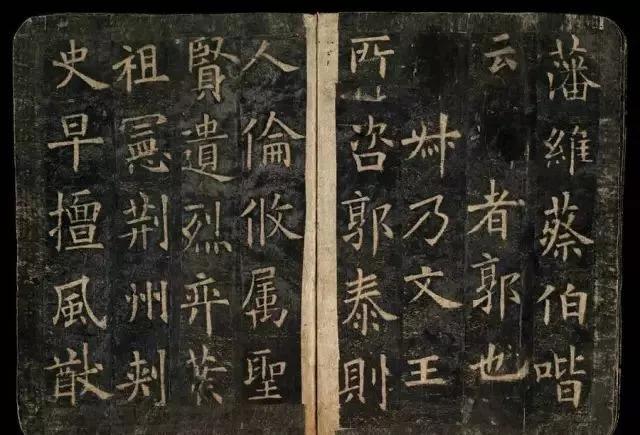 藩維蔡伯喈
云者郭也
叔乃文王
所咨郭泰則
人倫攸属聖
賢遺烈弈葉
祖憲荆州刾
史早擅風猷